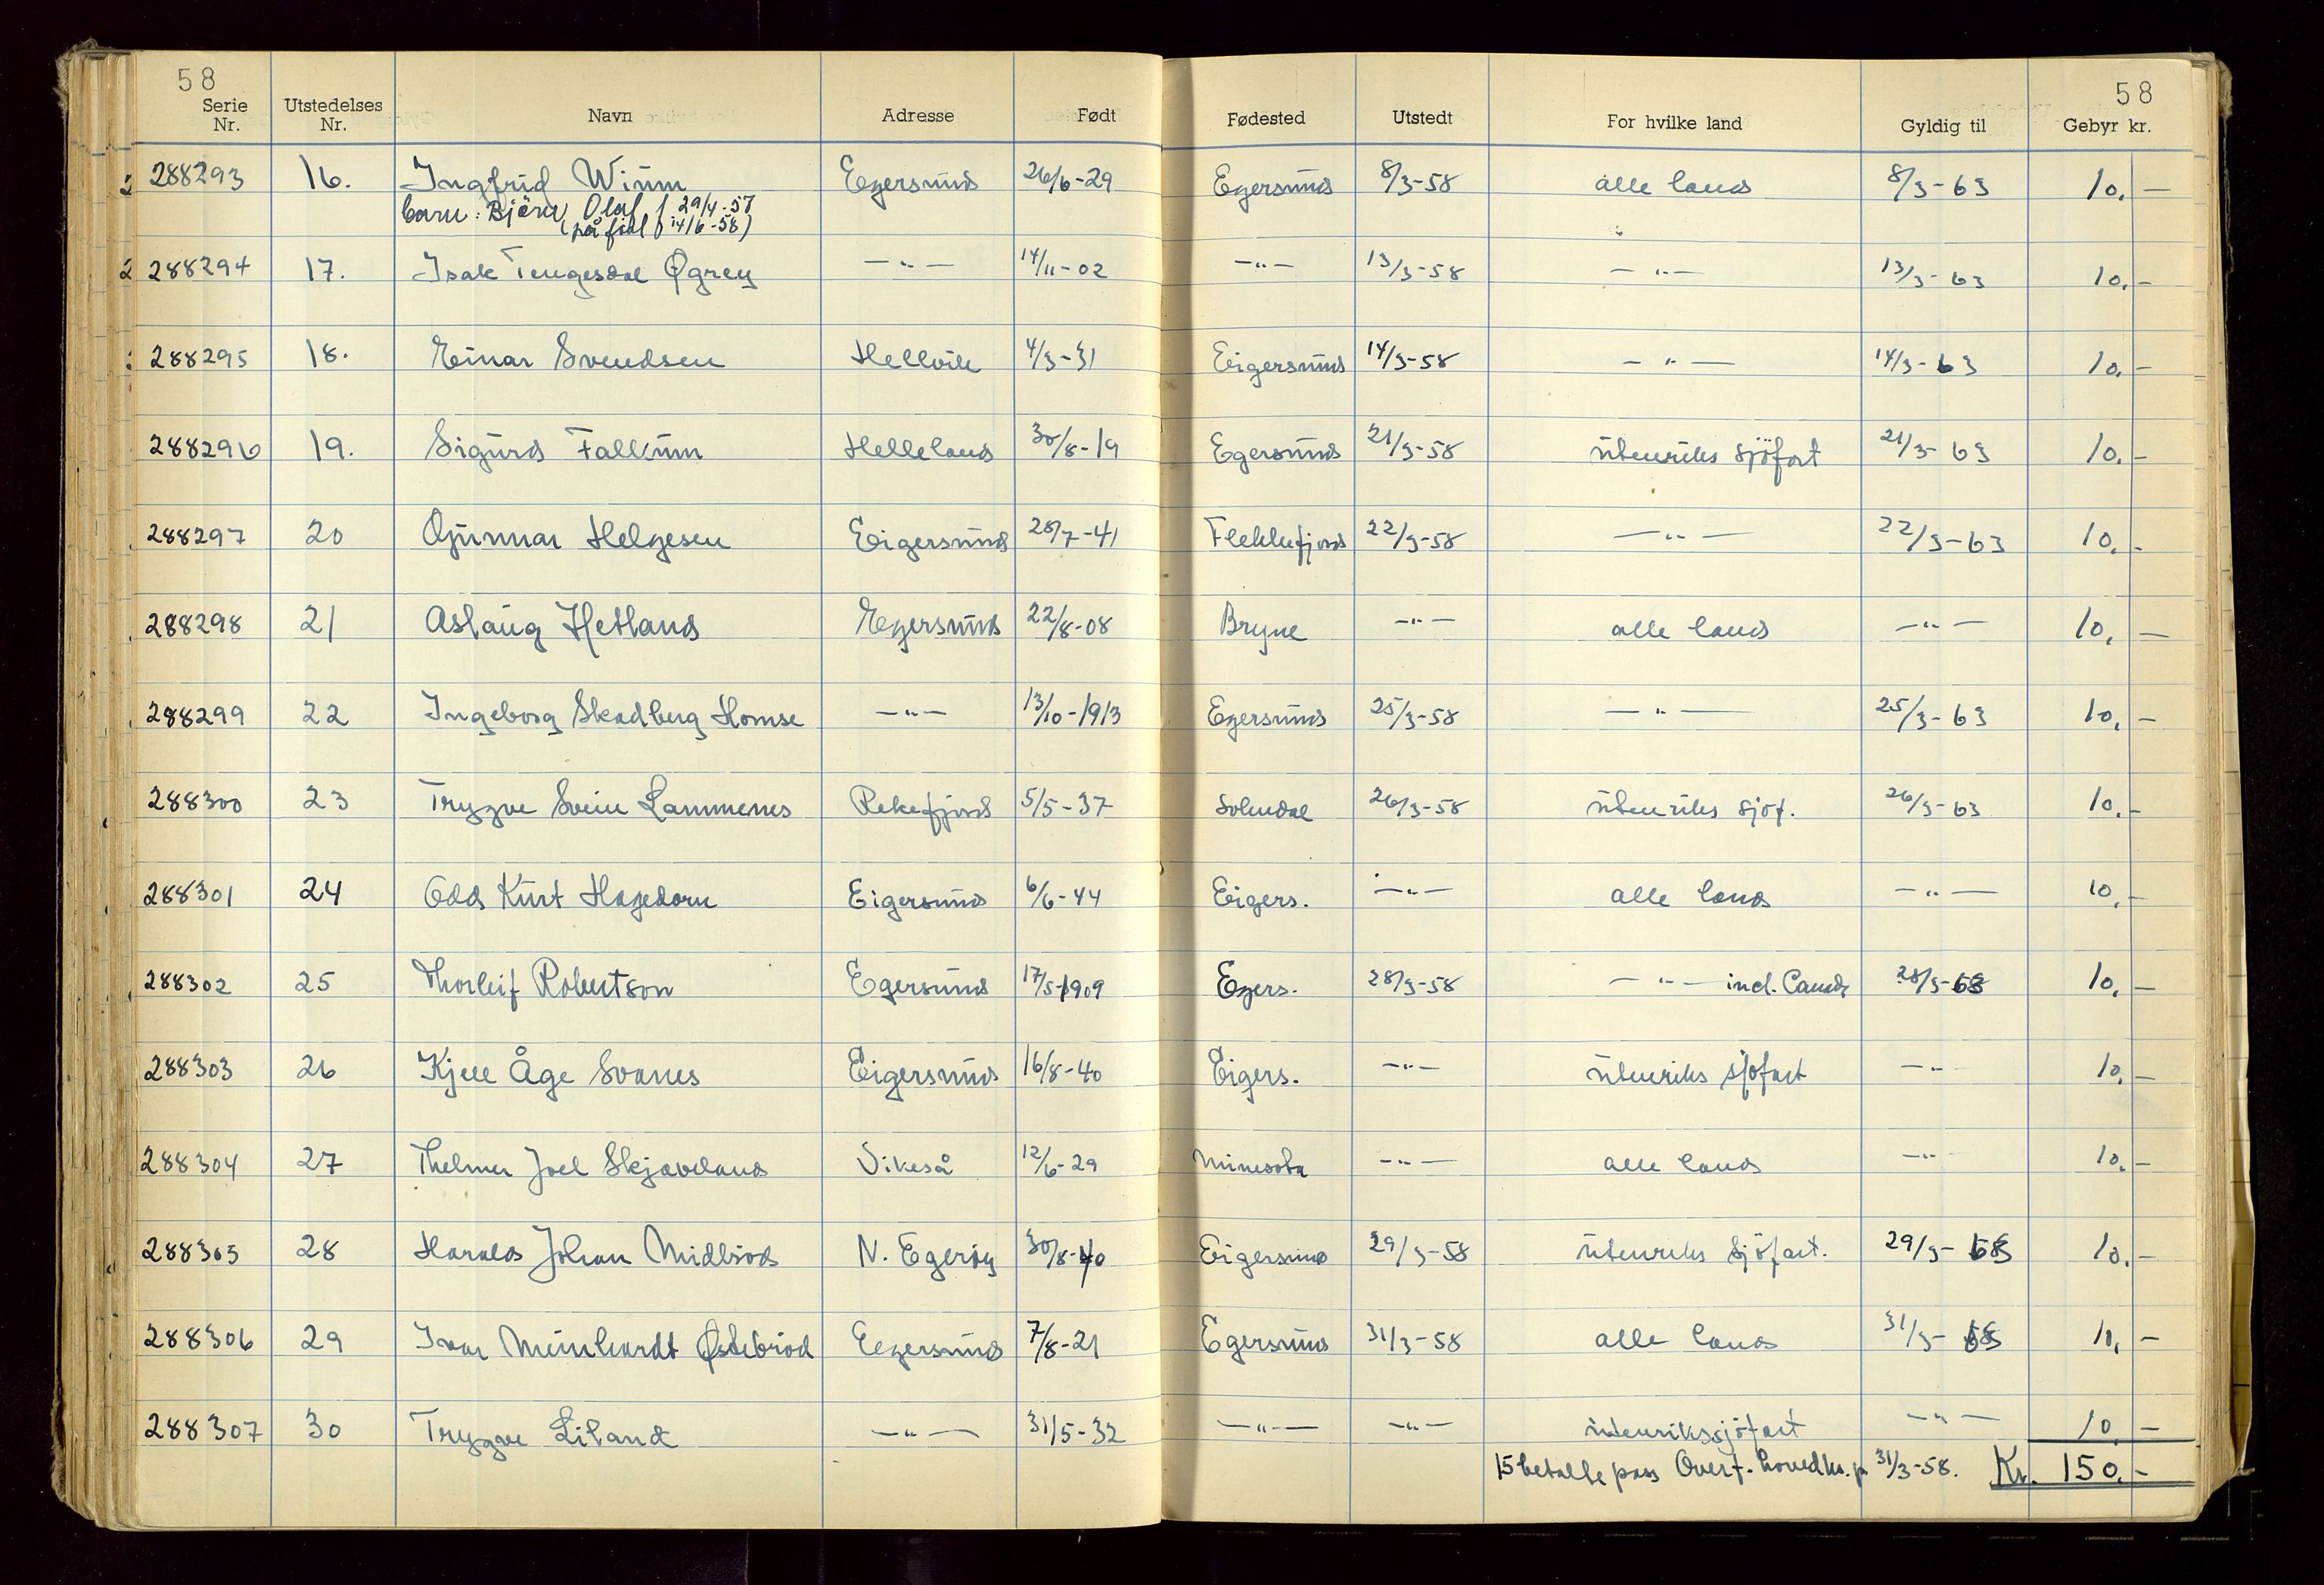 58 58
Serie Nr. Utstedelses Nr. Navn Adresse Født Fødested Utstedt For hvilke land Gyldig til Gebyr kr.
288293 16. Ingfrid Winm Egersund 26/6-29 Egersund 8/3-58 alle land 8/3-63 10,-
barn: Björn Olaf f 29/4-57
(på finl 14/6-58)
288294 17. Isak Tengesdal Øgrey -"- 14/11-02 -"- 13/3-58 -"- 13/3-63 10,-
288295 18. Einar Svendsen Hellvik 4/3-31 Eigersund 14/3-58 -"- 14/3-63 10,-
288296 19. Sigurd Falkum Helleland 30/8-19 Egersund 21/3-58 utenriks sjöfart 21/3-63 10,-
288297 20 Gunnar Helgesen Eigersund 28/7-41 Flekkefjord 22/3-58 -"- 22/3-63 10,-
288298 21 Aslaug Hetland Egersund 22/8-08 Bryne -"- alle land -"- 10,-
288299 22 Ingeborg Skadberg Homse -"- 13/10-1913 Egersund 25/3-58 -"- 25/3-63 10,-
288300 23 Trygve Svein Lammenes Rekefjord 5/5-37 Sokndal 26/3-58 utenriks sjöf. 26/3-63 10,-
288301 24 Odd Kurt Hagedorn Eigersund 6/6-44 Eigers. -"- alle land -"- 10,-
288302 25 Thorleif Robertson Egersund 17/5-1909 Egers. 28/3-58 -"- incl. Canada 28/3-63 10,-
288303 26 Kjell Åge Svanes Eigersund 16/8-40 Eigers. -"- utenriks sjöfart -"- 10,-
288304 27 Thelmer Joel Skjæveland Vikeså 12/6-29 Minesota -"- alle land -"- 10,-
288305 28 Harald Johan Midbrød N. Egerøy 30/8-40 Eigersund 29/3-58 utenriks sjöfart. 29/3-63 10,-
288306 29 Ivar Meinhardt Østebrød Egersund 7/8-21 Egersund 31/3-58 alle land 31/3-63 10,-
288307 30 Trygve Liland -"- 31/5-32 -"- -"- utenrikssjöfart -"- 10,-
15 betalte pass Overf. hovedks. p 31/3-58. Kr. 150.-